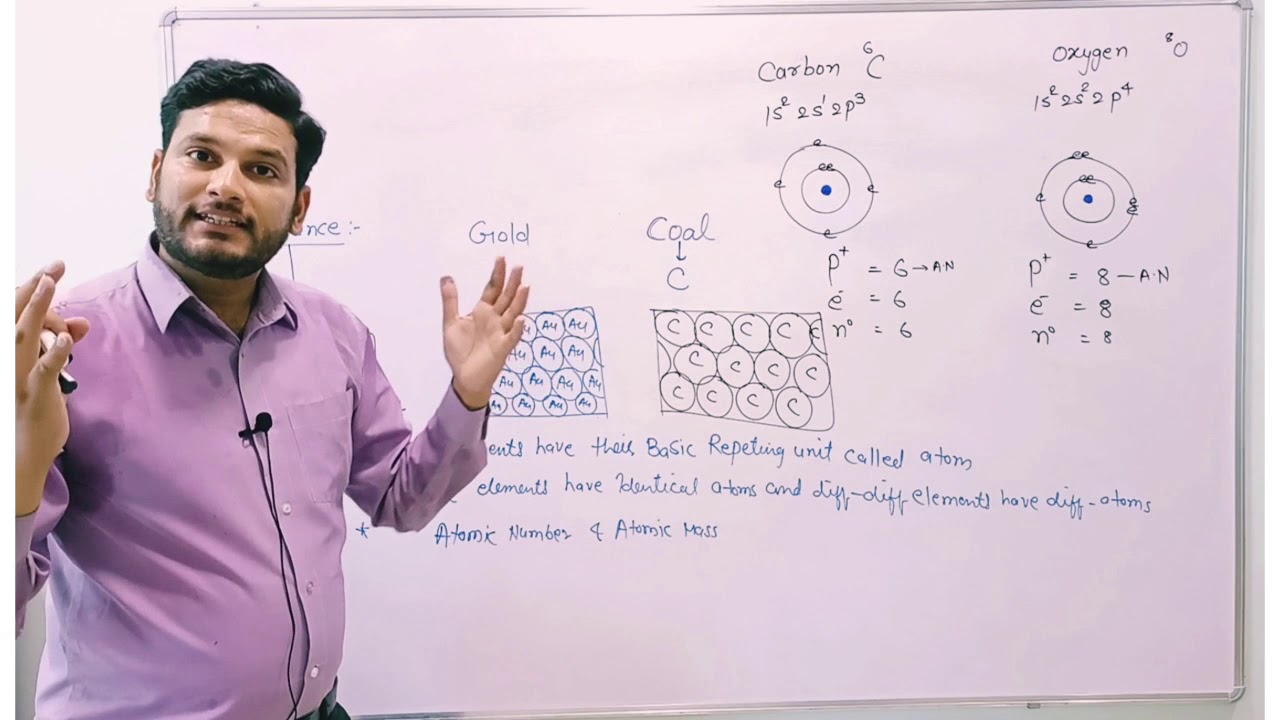 Carbon ⁶C
Oxygen ⁸O
1s² 2s¹ 2p³
1s² 2s² 2p⁴
e
ee
e e
e
ee
ee
e e
e
e
nce :-
Gold
Coal
C
P⁺ = 6 → A.N
e⁻ = 6
n⁰ = 6
P⁺ = 8 — A.N
e⁻ = 8
n⁰ = 8
Au Au Au
Au Au Au
Au Au Au Au
Au Au Au Au
C C C C C
C C C C
C C C C
ents have their Basic Repeting unit called atom
elements have Identical atoms and diff-diff elements have diff-atoms
* Atomic Number & Atomic Mass